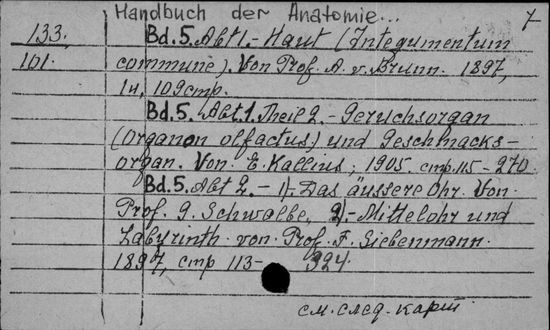 Handbuch der Anatomie... 7
133. Bd. 5. Abt 1. - Haut (Integumentum
101. commune). Von Prof. A. v. Brunn. 1897,
109 cmp.
Bd. 5. Abt. 1. Theil 2. - Geruchsorgan
(Organon olfactus) und Geschmacks-
organ. Von E. Kallius; 1905. cmp. 115 - 270.
Bd. 5. Abt 2. - 1, Das äussere Ohr. Von
Prof. G. Schwalbe. 2, - Mittelohr und
Labyrinth von Prof. F. Siebenmann.
1897, cmp 113 - 324
см. след. карт